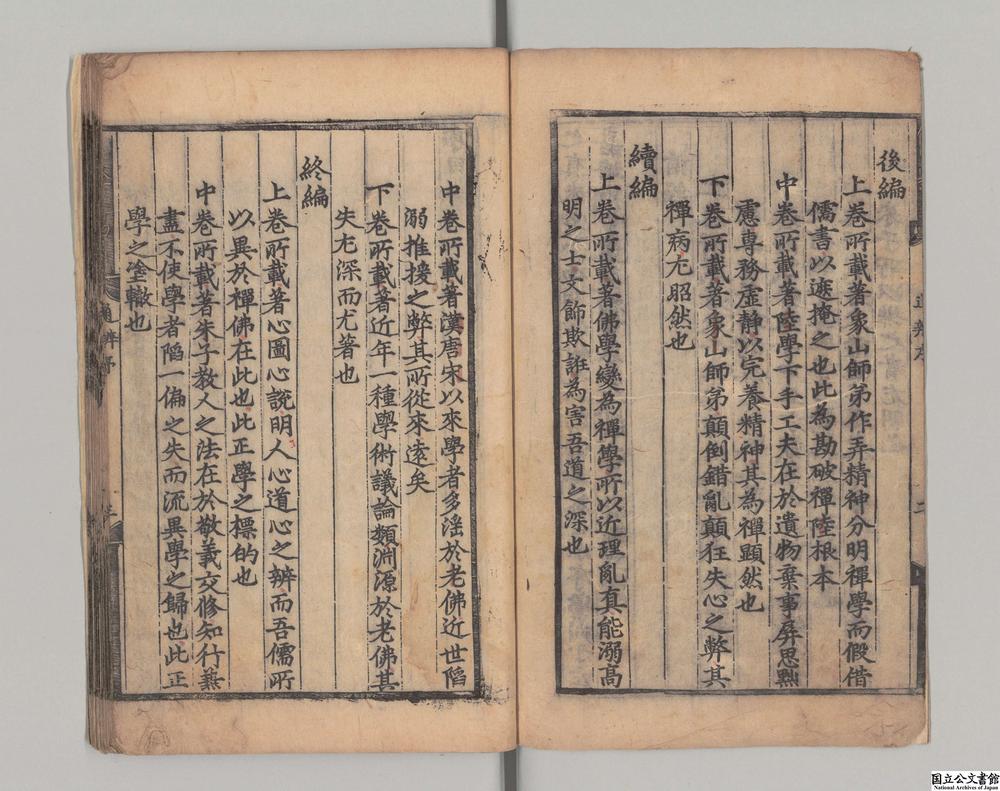 後編
上卷所載著象山師弟作弄精神分明禪學而假借
儒書以遮掩之也此為勘破禪陸根本
中卷所載著陸學下手工夫在於遺物棄事屏思黜
慮專務虛静以完養精神其為禪顯然也
下卷所載著象山師弟顛倒錯亂顛狂失心之弊其
禪病尤昭然也
續編
上卷所載著佛學變為禪學所以近理亂真能溺高
明之士文飾欺誑為害吾道之深也
中卷所載著漢唐宋以來學者多淫於老佛近世陷
溺推援之弊其所從來遠矣
下卷所載著近年一種學術議論類淵源於老佛其
失尤深而尤著也
終編
上卷所載著心圖心說明人心道心之辨而吾儒所
以異於禪佛在此也此正學之標的也
中卷所載著朱子教人之法在於敬義交修知行兼
盡不使學者陷一偏之失而流異學之歸也此正
學之塗轍也
通辨序
国立公文書館
National Archives of Japan